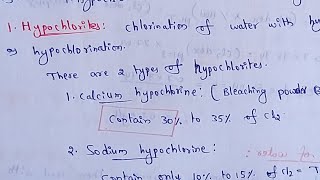 1. Hypochlorites: chlorination of water with hy
as hypochlorination.
These are 2 types of hypochlorites.
1. Calcium hypochlorine: [Bleaching powder
Contain 30% to 35% of Cl2
2. Sodium hypochlorine:
Contain only 10% to 15% of Cl2 =